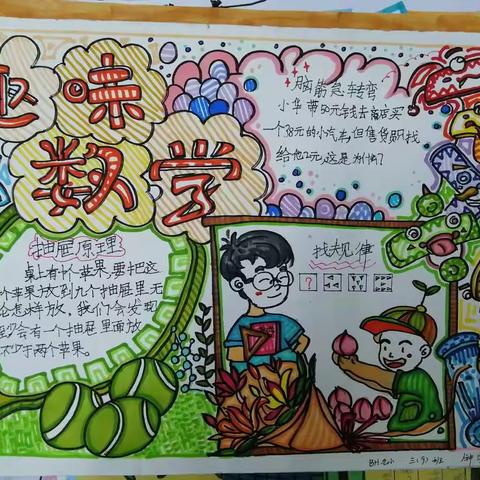 趣味
数学
脑筋急转弯
小华带50元钱去商店买
一个38元的小汽车,但售货员只找
给他2元,这是为什么?
抽屉原理
桌上有十个苹果,要把这
个苹果放到九个抽屉里无
论怎样放,我们会发现
至少会有一个抽屉里面放
不少于两个苹果。
找规律
?
三(9)班